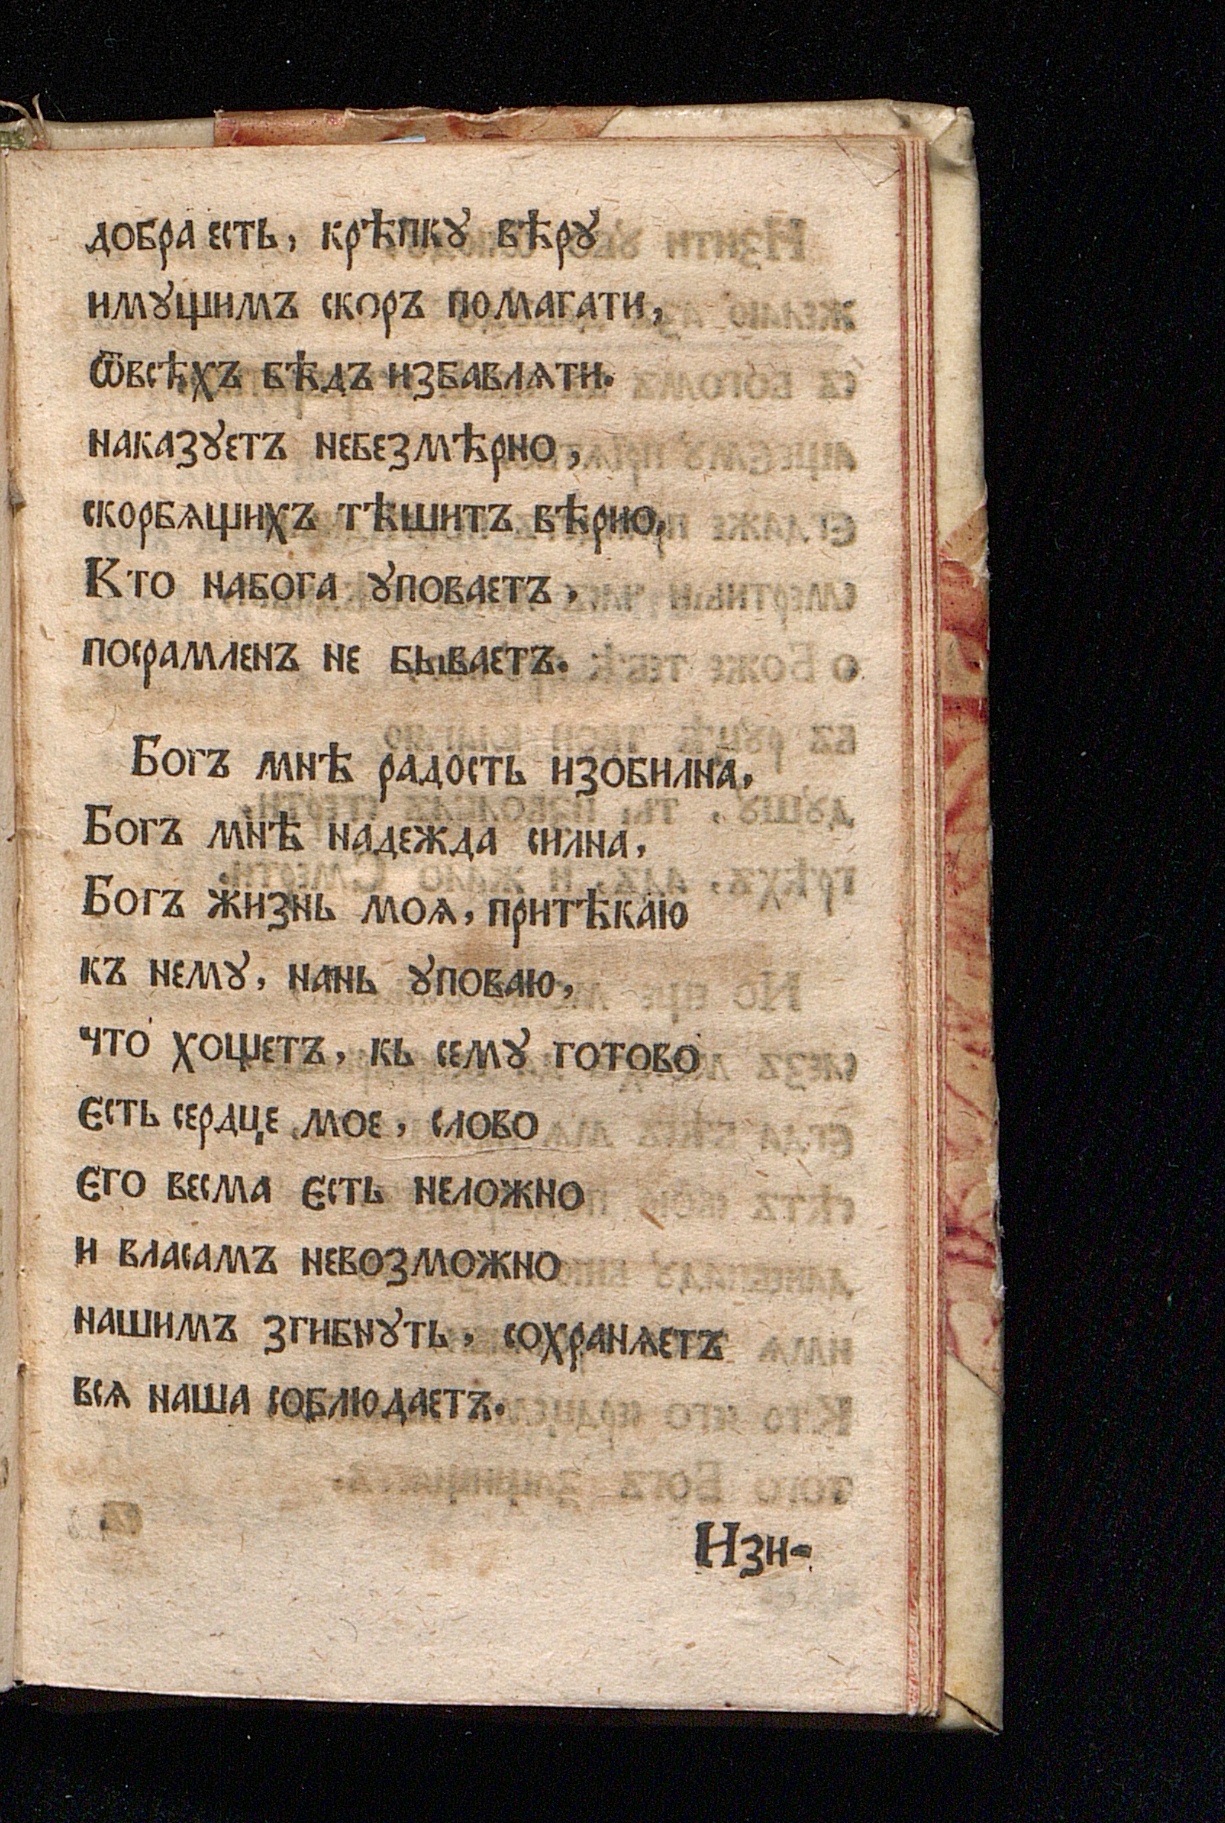 добра есть, крѣпкꙋ вѣрꙋ
имꙋщимъ скоръ помагати,
ѿвсѣхъ бѣдъ избавлѧти.
наказꙋетъ небезмѣрно,
скорбѧщихъ тѣшитъ вѣрно,
Кто набога ꙋповаетъ,
посрамленъ не бываетъ.
Богъ мнѣ радость изобилна,
Богъ мнѣ надежда силна,
Богъ жизнь моѧ, притѣкаю
къ немꙋ, нань ꙋповаю,
что хощетъ, кь семꙋ готово
Єсть сердце мое, слово
Єго весма Єсть неложно
и власамъ невозможно
нашимъ згибнꙋть, сохранѧетъ
всѧ наша соблюдаетъ.
Изи-